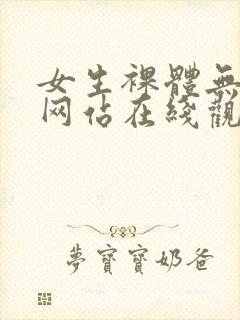 女生裸體無
网佔在綫觀
夢寶寶奶爸